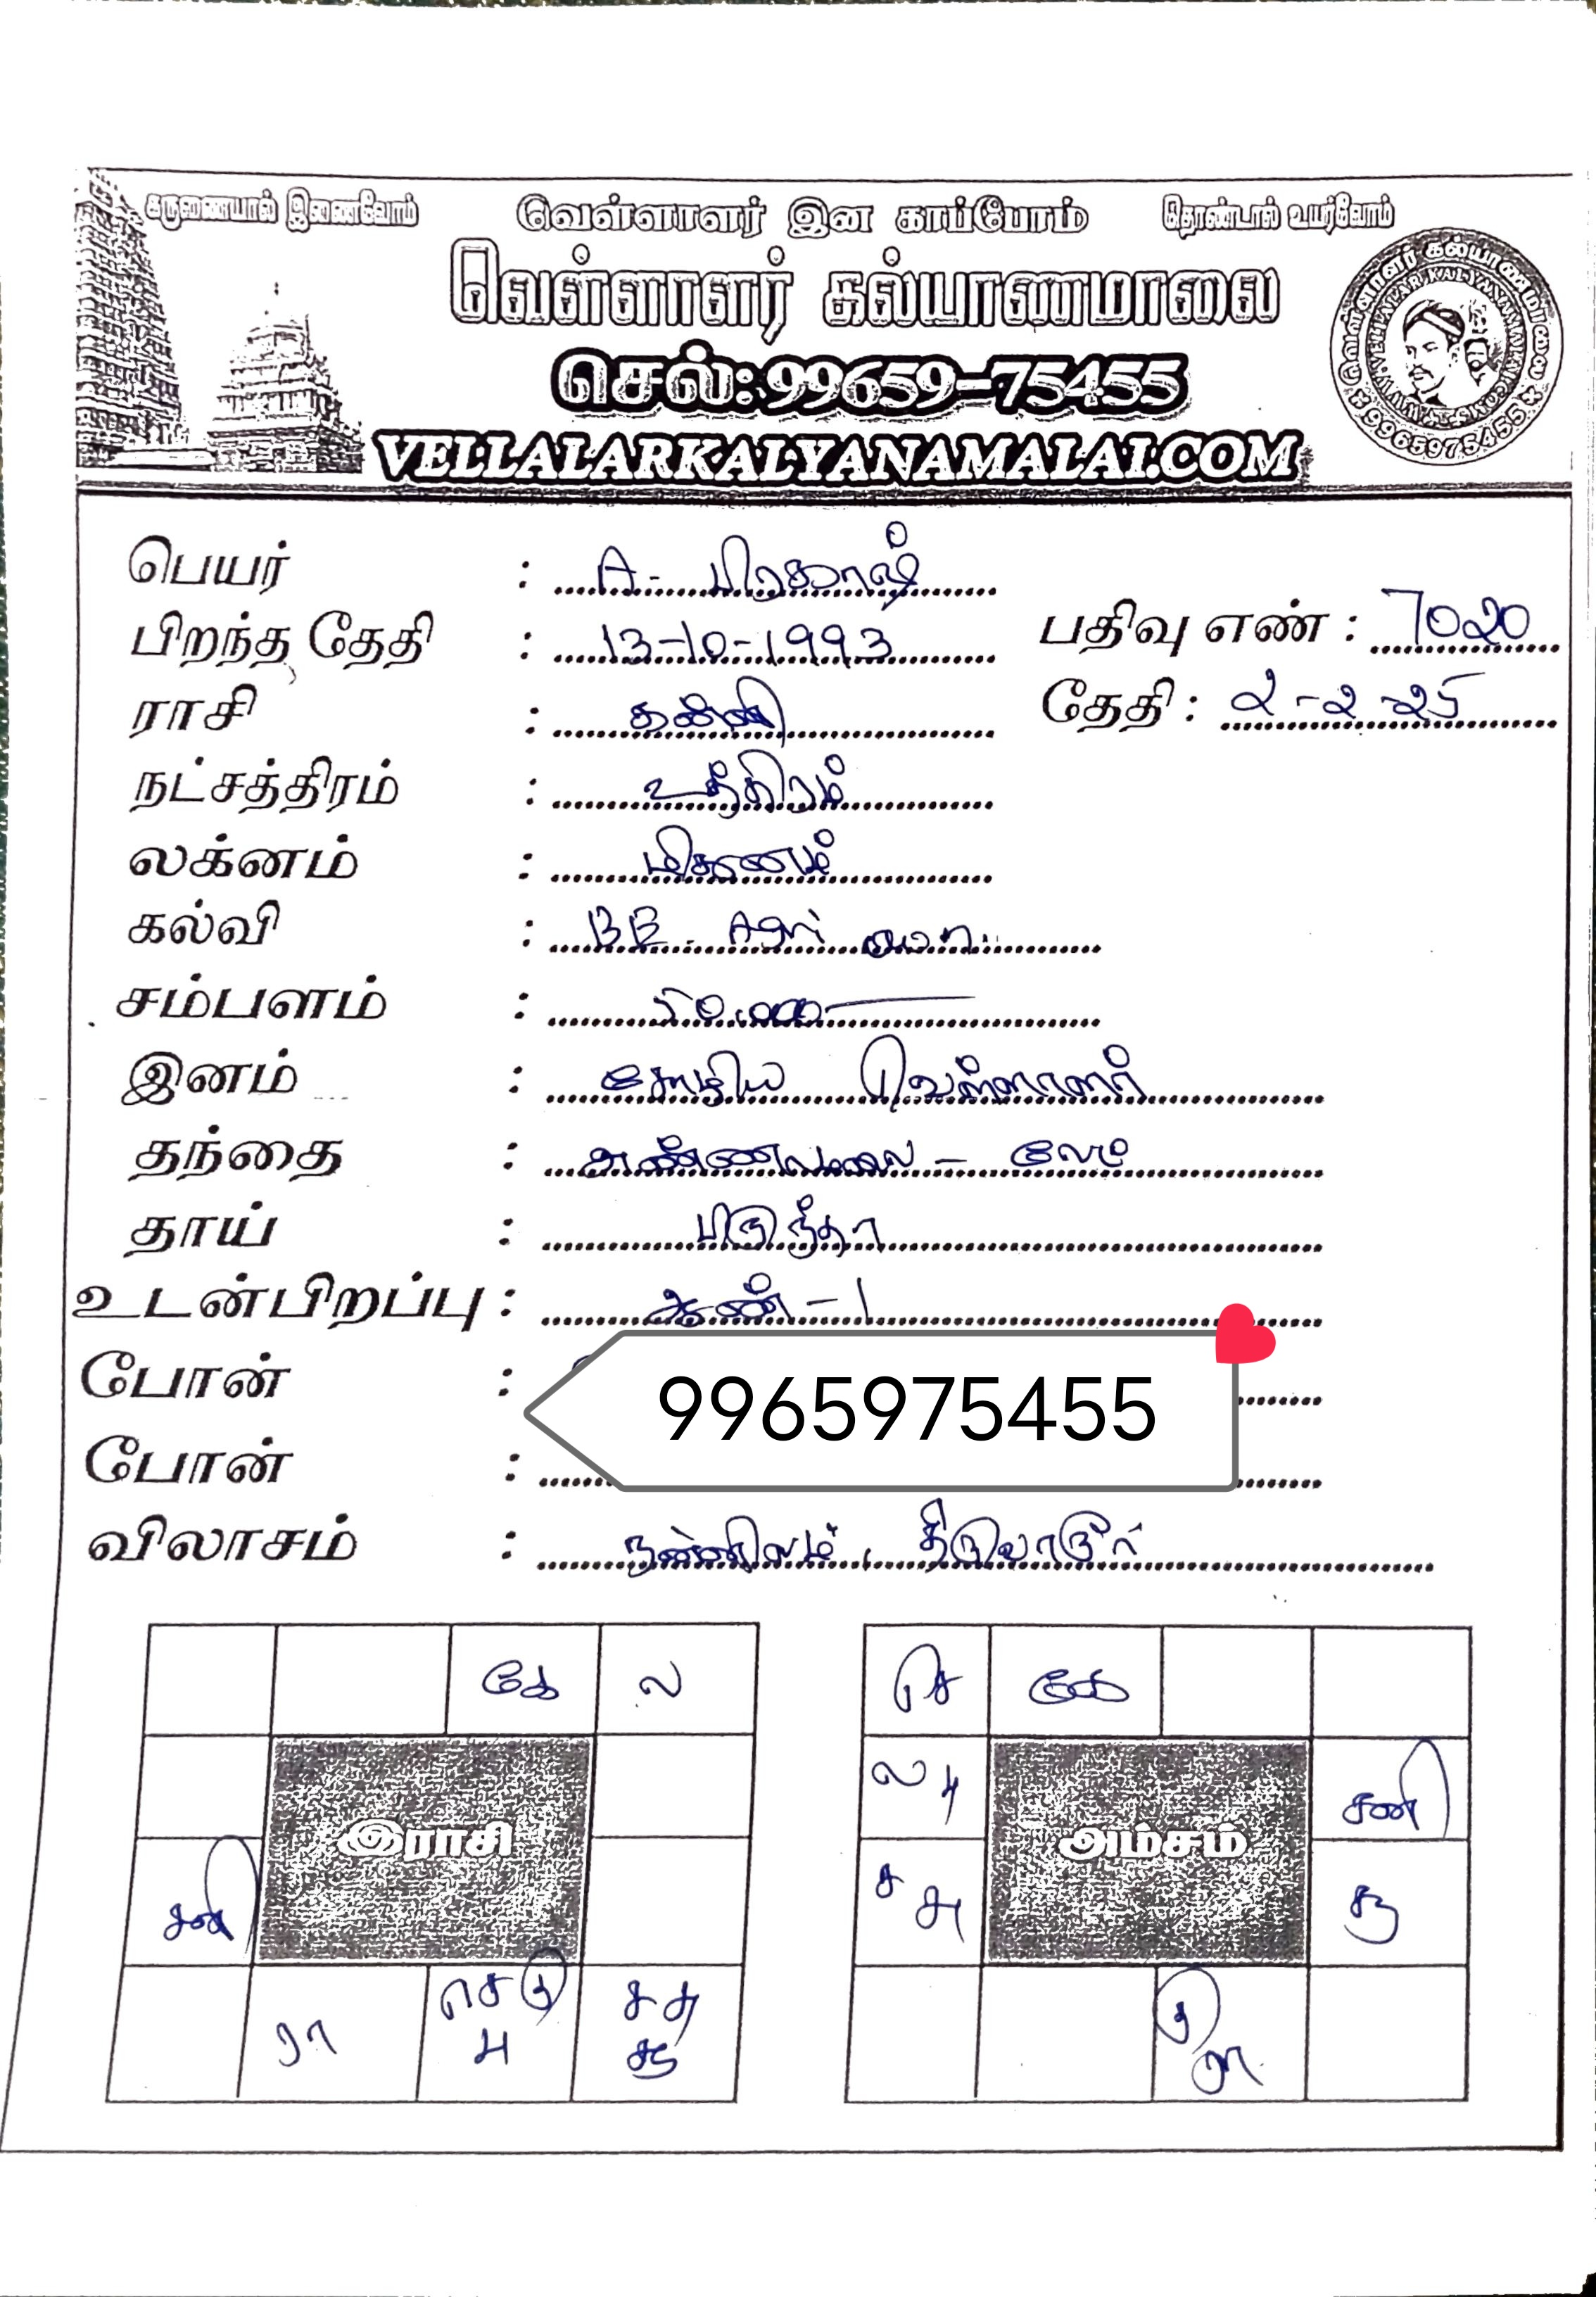 கருணையால் இணைவோம் வெள்ளாளர் இன காப்போம் தொண்டால் உயர்வோம்
வெள்ளாளர் கல்யாணமாலை
செல்: 99659-75455
VELLALARKALYANAMALAI.COM
பெயர் : A - பிரகாஷ்
பிறந்த தேதி : 13-10-1993 பதிவு எண் : 7020
ராசி : கன்னி தேதி : 2-2-25
நட்சத்திரம் : உத்திரம்
லக்னம் : மிதுனம்
கல்வி : BE. Agri
சம்பளம் : 50.000
இனம் : சோழிய வெள்ளாளர்
தந்தை : அண்ணாமலை - லேட்
தாய் :
உடன்பிறப்பு : ஆண் - 1
போன் : 9965975455
போன் :
விலாசம் : நன்னிலம், திருவாரூர்
கே ல
இராசி
சனி
ரா செ சு
செ கே
ல பு சனி
அம்சம்
ச அ கு